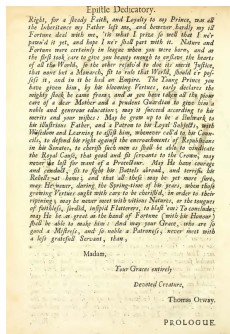 Epistle Dedicatory.
Right, for a steady Faith, and Loyalty to my Prince, was all
the Inheritance my Father left me, and however hardly my ill
Fortune deal with me, 'tis what I prize so well that I ne'r
pawn'd it yet, and hope I ne'r shall part with it. Nature and
Fortune were certainly in league when you were born, and as
the first took care to give you beauty enough to enslave the hearts
of all the World, so the other resolv'd to do its merit Justice,
that none but a Monarch, fit to rule that World, should e'r pos-
sess it, and in it he had an Empire. The Young Prince you
have given him, by his blooming Virtues, early declares the
mighty stock he came from; and as you have taken all the pious
care of a dear Mother and a prudent Guardian to give him a
noble and generous education; may it succeed according to his
merits and your wishes: May he grow up to be a Bulwark to
his illustrious Father, and a Patron to his Loyal Subjects, with
Wisdom and Learning to assist him, whenever call'd to his Coun-
cils, to defend his right against the encroachments of Republicans
in his Senates, to cherish such men as shall be able to vindicate
the Royal Cause, that good and fit servants to the Crown, may
never be lost for want of a Protectour. May He have courage
and conduct, fit to fight his Battels abroad, and terrifie his
Rebells at home; and that all these may be yet more sure,
may He never, during the Spring-time of his years, when those
growing Virtues ought with care to be cherish'd, in order to their
ripening; may he never meet with vitious Natures, or the tongues
of faithless, sordid, insipid Flatterers, to blast 'em: To conclude;
may He be as great as the hand of Fortune (with his Honour)
shall be able to make him: And may your Grace, who are so
good a Mistress, and so noble a Patroness, never meet with
a less gratefull Servant, than,
Madam,
Your Graces entirely
Devoted Creature,
Thomas Otway.
PROLOGUE.